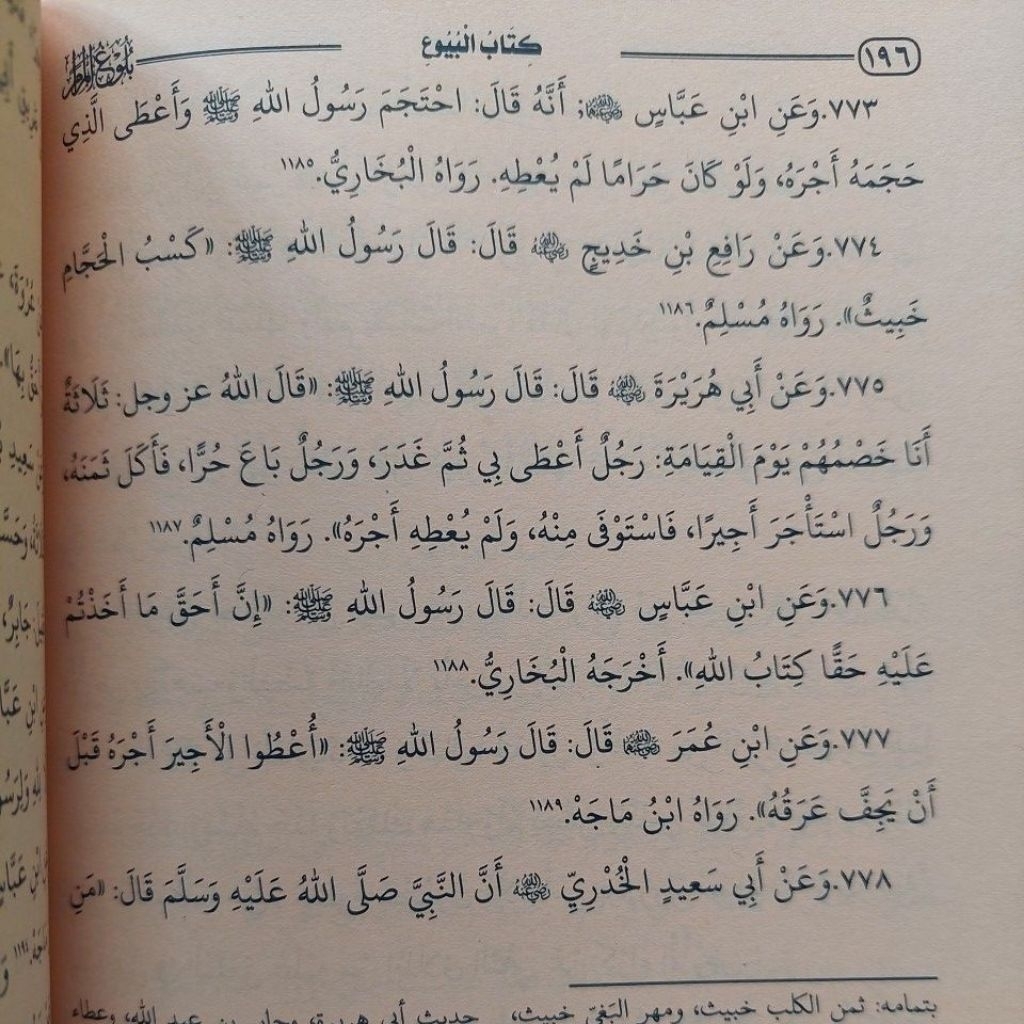 ١٩٦ كِتَابُ الْبُيُوعِ بُلُوغُ المَرَام
٧٧٣.وَعَنِ ابْنِ عَبَّاسٍ ﷺ; أَنَّهُ قَالَ: احْتَجَمَ رَسُولُ اللهِ ﷺ وَأَعْطَى الَّذِي
حَجَمَهُ أَجْرَهُ، وَلَوْ كَانَ حَرَامًا لَمْ يُعْطِهِ. رَوَاهُ الْبُخَارِيُّ.١١٨٥
٧٧٤.وَعَنْ رَافِعِ بْنِ خَدِيجٍ رضي الله عنه قَالَ: قَالَ رَسُولُ اللهِ ﷺ: «كَسْبُ الْحَجَّامِ
خَبِيثٌ». رَوَاهُ مُسْلِمٌ.١١٨٦
٧٧٥.وَعَنْ أَبِي هُرَيْرَةَ رضي الله عنه قَالَ: قَالَ رَسُولُ اللهِ ﷺ: «قَالَ اللهُ عز وجل: ثَلَاثَةٌ
أَنَا خَصْمُهُمْ يَوْمَ الْقِيَامَةِ: رَجُلٌ أَعْطَى بِي ثُمَّ غَدَرَ، وَرَجُلٌ بَاعَ حُرًّا، فَأَكَلَ ثَمَنَهُ،
وَرَجُلٌ اسْتَأْجَرَ أَجِيرًا، فَاسْتَوْفَى مِنْهُ، وَلَمْ يُعْطِهِ أَجْرَهُ». رَوَاهُ مُسْلِمٌ.١١٨٧
٧٧٦.وَعَنِ ابْنِ عَبَّاسٍ رضي الله عنه قَالَ: قَالَ رَسُولُ اللهِ ﷺ: «إِنَّ أَحَقَّ مَا أَخَذْتُمْ
عَلَيْهِ حَقًّا كِتَابُ اللهِ». أَخْرَجَهُ الْبُخَارِيُّ.١١٨٨
٧٧٧.وَعَنِ ابْنِ عُمَرَ رضي الله عنهما قَالَ: قَالَ رَسُولُ اللهِ ﷺ: «أُعْطُوا الْأَجِيرَ أَجْرَهُ قَبْلَ
أَنْ يَجِفَّ عَرَقُهُ». رَوَاهُ ابْنُ مَاجَهْ.١١٨٩
٧٧٨.وَعَنْ أَبِي سَعِيدٍ الْخُدْرِيِّ رضي الله عنه أَنَّ النَّبِيَّ صَلَّى اللهُ عَلَيْهِ وَسَلَّمَ قَالَ: «مَنِ
بتمامه: ثمن الكلب خبيث، ومهر البَغيّ خبيث، حديث أبي هريرة، وجابر بن عبد الله، وعطاء